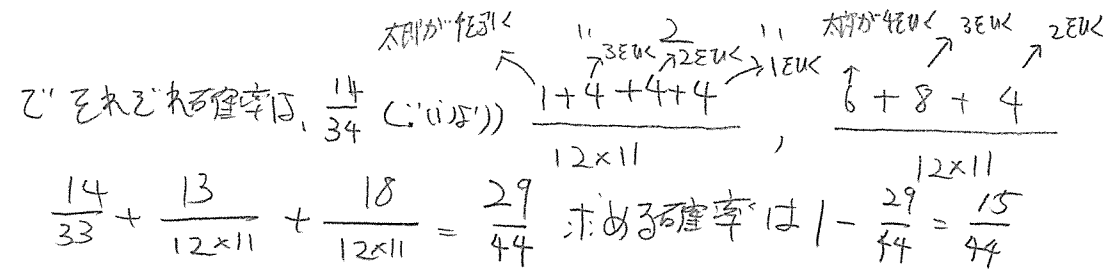 太郎が4をひく 〃 3をひく 2をひく 〃 1をひく 太郎が4をひく 3をひく 2をひく
で それぞれ確率は、14/34 (ごいばり) (1+4+4+4)/(12×11) , (6+8+4)/(12×11)
14/33 + 13/(12×11) + 18/(12×11) = 29/44 求める確率は 1 - 29/44 = 15/44